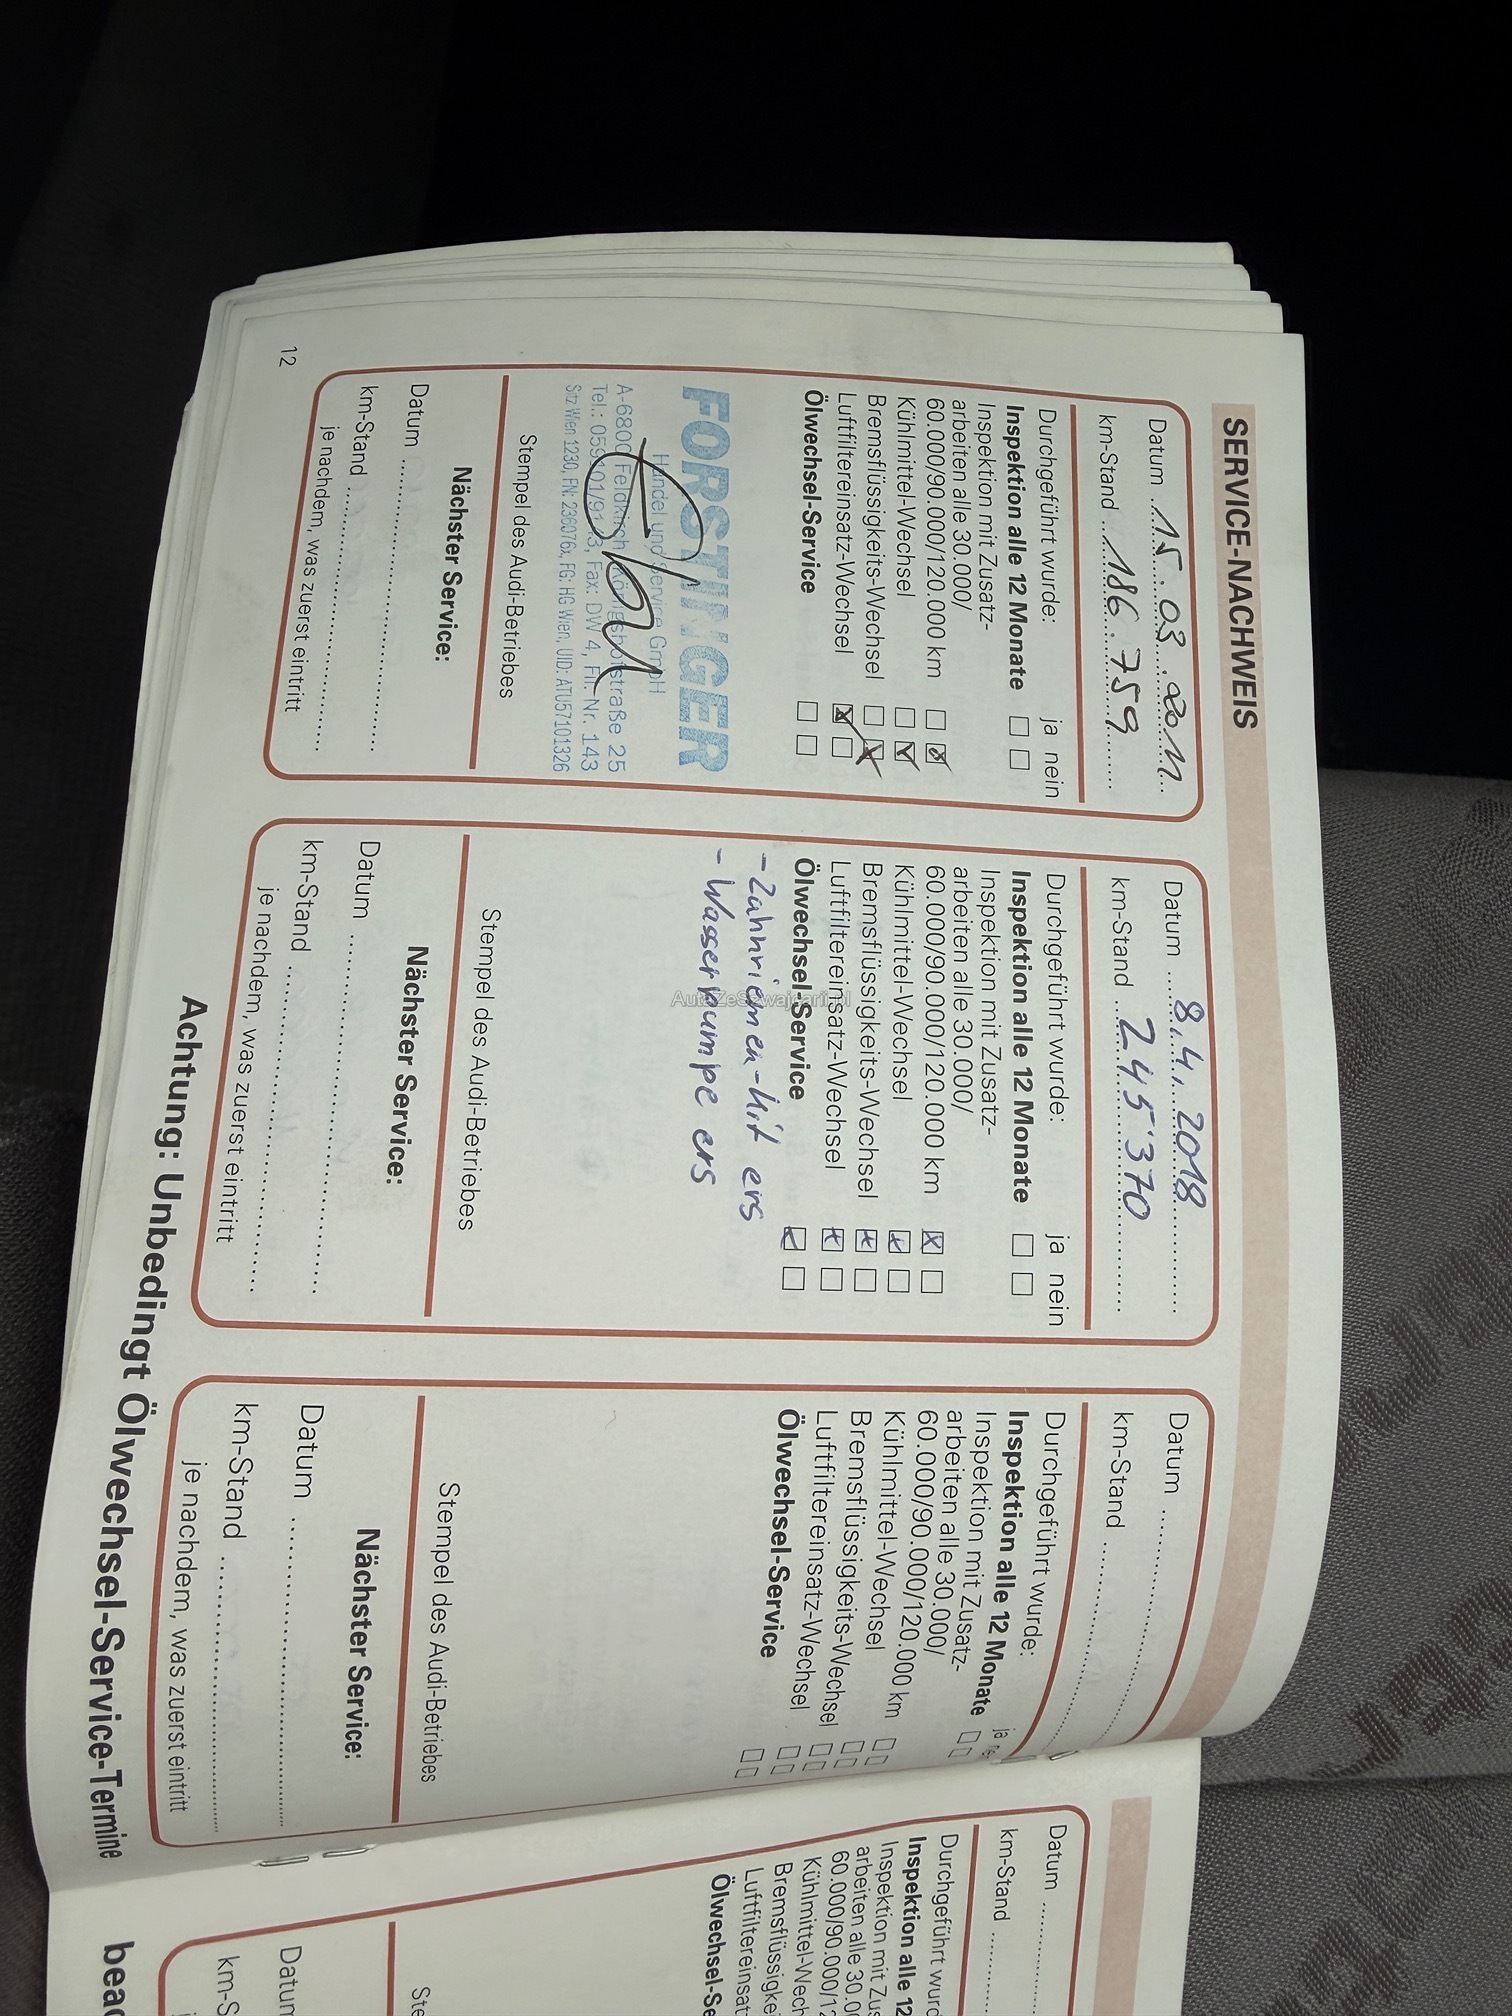 SERVICE-NACHWEIS
Datum 15.03.2011
km-Stand 186.759
Durchgeführt wurde: ja nein
Inspektion alle 12 Monate
Inspektion mit Zusatz-
arbeiten alle 30.000/
60.000/90.000/120.000 km
Kühlmittel-Wechsel
Bremsflüssigkeits-Wechsel
Luftfiltereinsatz-Wechsel
Ölwechsel-Service
FORSTINGER
Handel und Service GmbH
A-6800 Feldkirch, Königshofstraße 25
Tel.: 059101/9143, Fax: DW 4, Fil. Nr. 143
Sitz Wien 1230, FN: 236076x, FG: HG Wien, UID: ATU57101326
Stempel des Audi-Betriebes
Nächster Service:
Datum
km-Stand
je nachdem, was zuerst eintritt
12
Datum 8.4.2018
km-Stand 245'370
Durchgeführt wurde: ja nein
Inspektion alle 12 Monate
Inspektion mit Zusatz-
arbeiten alle 30.000/
60.000/90.000/120.000 km
Kühlmittel-Wechsel
Bremsflüssigkeits-Wechsel
Luftfiltereinsatz-Wechsel
Ölwechsel-Service
- Zahnriemen-Kit ers
- Wasserpumpe ers
AutaZeSzwajcarii.pl
Stempel des Audi-Betriebes
Nächster Service:
Datum
km-Stand
je nachdem, was zuerst eintritt
Datum
km-Stand
Durchgeführt wurde: ja
Inspektion alle 12 Monate
Inspektion mit Zusatz-
arbeiten alle 30.000/
60.000/90.000/120.000 km
Kühlmittel-Wechsel
Bremsflüssigkeits-Wechsel
Luftfiltereinsatz-Wechsel
Ölwechsel-Service
Stempel des Audi-Betriebes
Nächster Service:
Datum
km-Stand
je nachdem, was zuerst eintritt
Achtung: Unbedingt Ölwechsel-Service-Termine
Datum
km-Stand
Durchgeführt wurd
Inspektion alle 12
Inspektion mit Zus
arbeiten alle 30.0
60.000/90.000/12
Kühlmittel-Wech
Bremsflüssigke
Luftfiltereinsat
Ölwechsel-Se
Ste
Datum
km-S
beac